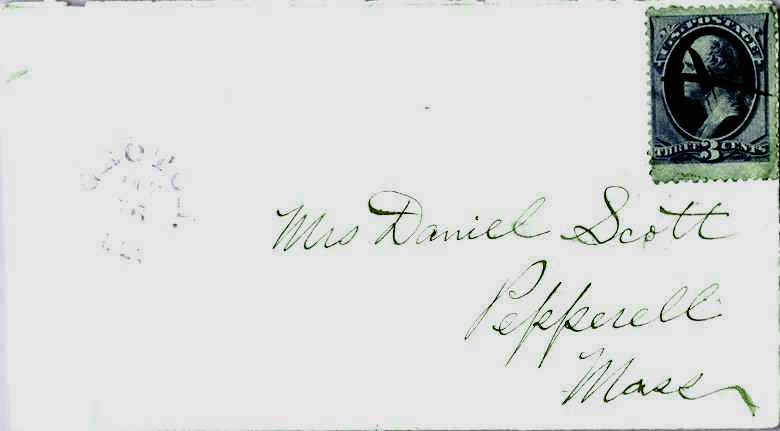 U.S. POSTAGE
THREE 3 CENTS
Mrs Daniel Scott
Pepperell
Mass